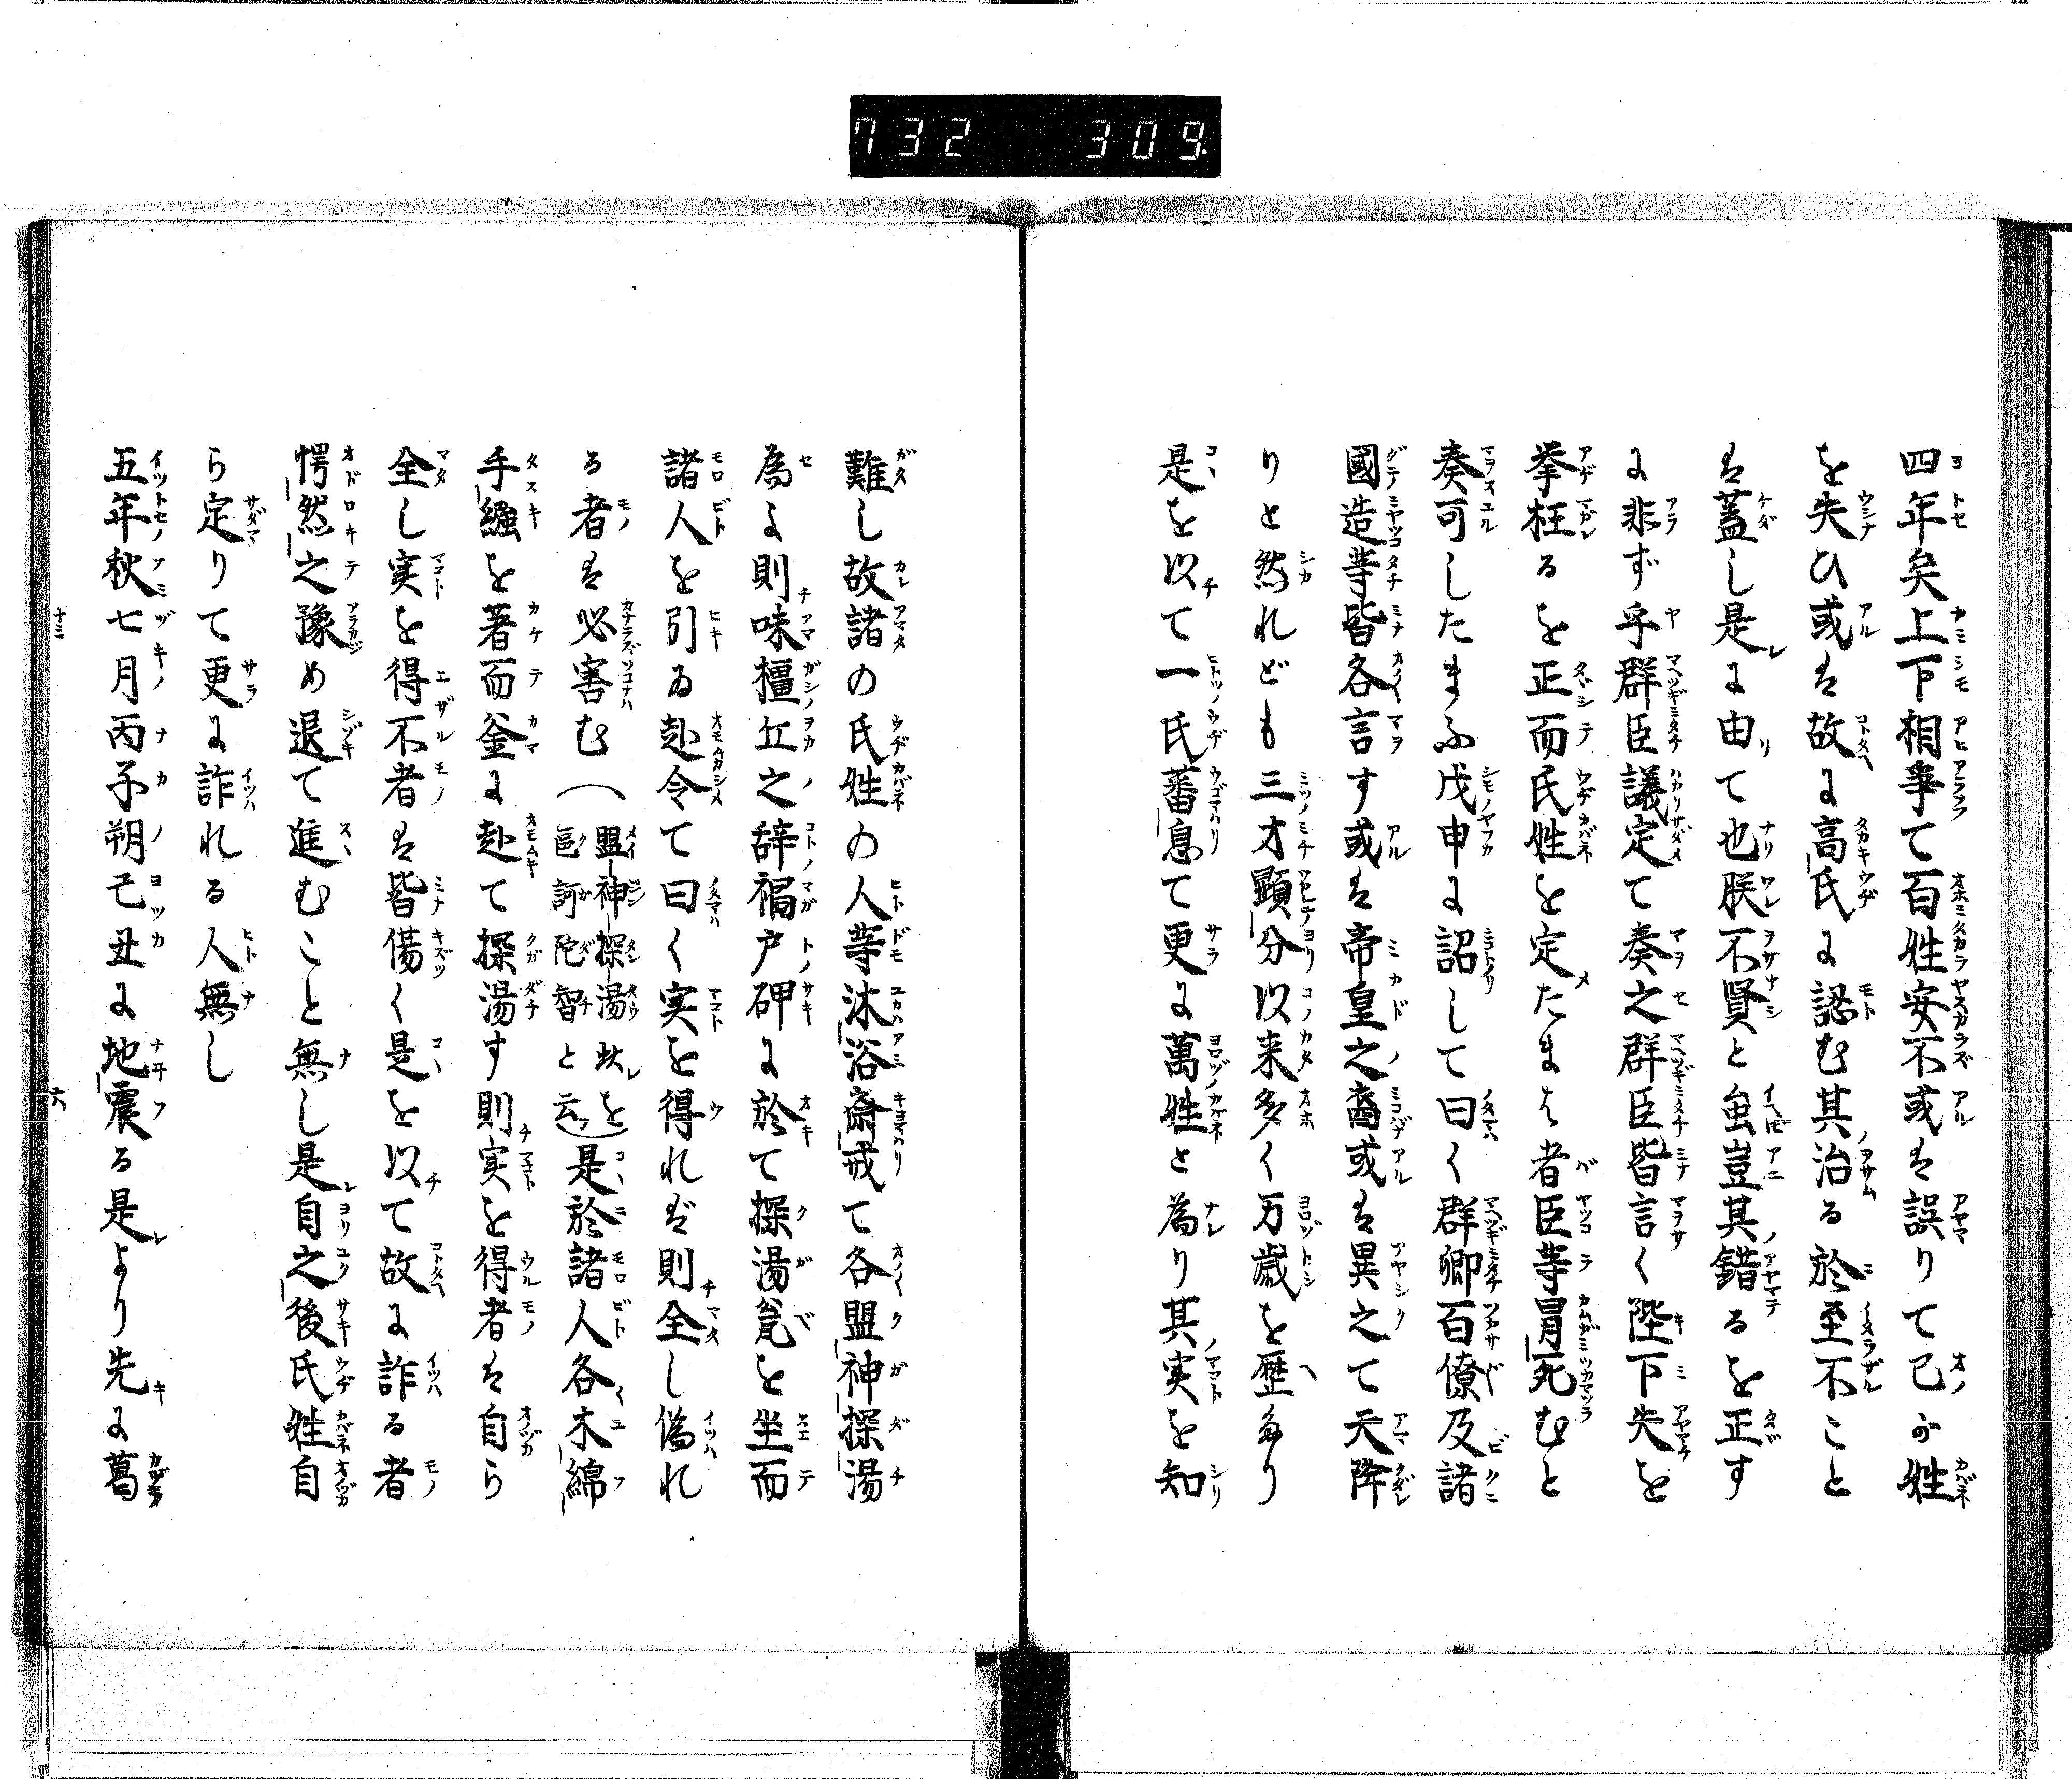 732 309.
四年矣上下相爭て百姓安不或は誤りて己が姓
を失ひ或は故に高氏に認む其治る於至不こと
は蓋し是に由て也朕不賢と虽豈其錯るを正す
に非ず乎群臣議定て奏之群臣皆言く陛下失を
擧枉るを正而氏姓を定たまは者臣等冒死むと
奏可したまふ戊申に詔して曰く群卿百僚及諸
國造等皆各言す或は帝皇之裔或は異之て天降
りと然れども三才顕分以来多く万歳を歴多り
是を以て一氏蕃息て更に萬姓と為り其実を知
難し故諸の氏姓の人等沐浴斎戒て各盟神探湯
為よ則味橿丘之辞禍戸䂨に於て探湯瓮を坐而
諸人を引ゐ赴令て曰く実を得れば則全し偽れ
る者は必害む(盟神探湯此を區訶陀智と云ふ)是於諸人各木綿
手繦を著而釜に赴て探湯す則実を得者は自ら
全し実を得不者は皆傷く是を以て故に詐る者
愕然之豫め退て進むこと無し是自之後氏姓自
ら定りて更に詐れる人無し
五年秋七月丙子朔己丑に地震る是より先に葛
十三 六